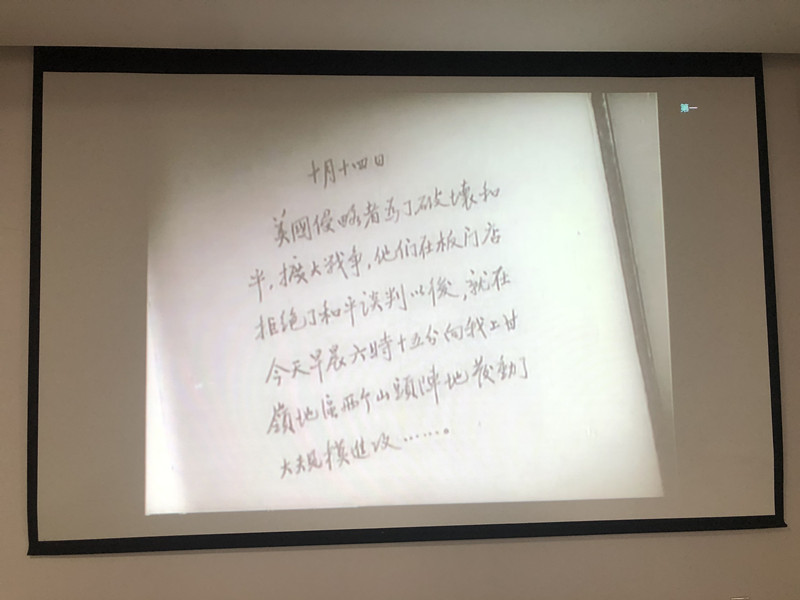 十月十四日
美國侵略者为了破壞和
平，擴大战争，他们在板门店
拒绝了和平谈判以後，就在
今天早晨六時十五分向我上甘
嶺地區兩个山頭陣地发動了
大規模進攻……。
第一